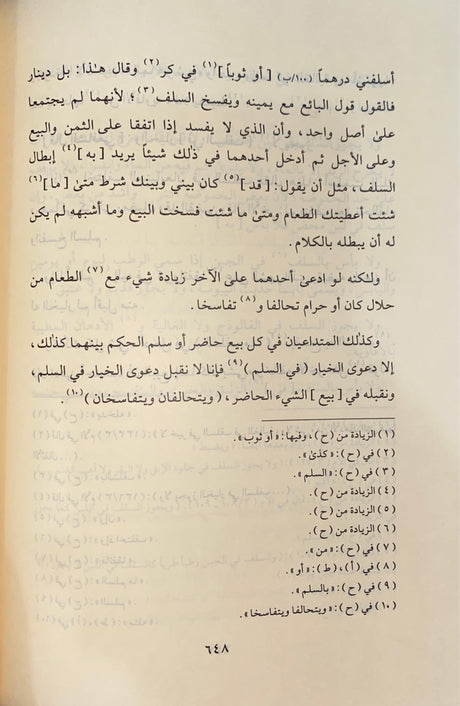 أسلفني درهماً (١٠٠/ب) [ أو ثوباً ](١) في كر(٢) وقال هٰذا: بل دينار
فالقول قول البائع مع يمينه ويفسخ السلف(٣)؛ لأنهما لم يجتمعا
علىٰ أصل واحد، وأن الذي لا يفسد إذا اتفقا على الثمن والبيع
وعلى الأجل ثم أدخل أحدهما في ذٰلك شيئاً يريد [ به ](٤) إبطال
السلف، مثل أن يقول: [ قد ](٥) كان بيني وبينك شرط متىٰ [ ما ](٦)
شئت أعطيتك الطعام ومتىٰ ما شئت فسخت البيع وما أشبهه لم يكن
له أن يبطله بالكلام.
ولـٰكنه لو ادعىٰ أحدهما على الآخر زيادة شيء مع(٧) الطعام من
حلال كان أو حرام تحالفا و(٨) تفاسخا.
وكذٰلك المتداعيان في كل بيع حاضر أو سلم الحكم بينهما كذٰلك،
إلا دعوى الخيار ( في السلم )(٩) فإنا لا نقبل دعوى الخيار في السلم،
ونقبله في [ بيع ] الشيء الحاضر، ( ويتحالفان ويتفاسخان )(١٠).
(١) الزيادة من (ح)، وفيها: «أو ثوب».
(٢) في (ح): «كذىٰ».
(٣) في (ح): «السلم».
(٤) الزيادة من (ح).
(٥) الزيادة من (ح).
(٦) الزيادة من (ح).
(٧) في (ح): «من».
(٨) في (أ)، (ط): «أو».
(٩) في (ح): «بالسلم».
(١٠) في (ح): «ويتحالفا ويتفاسخا».
٦٤٨